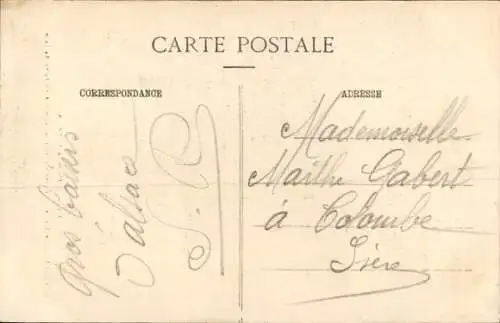 CARTE POSTALE
CORRESPONDANCE
Gros baisers
d'alsace
J. R
ADRESSE
Mademoiselle
Marthe Gabert
à Colombe
Isère